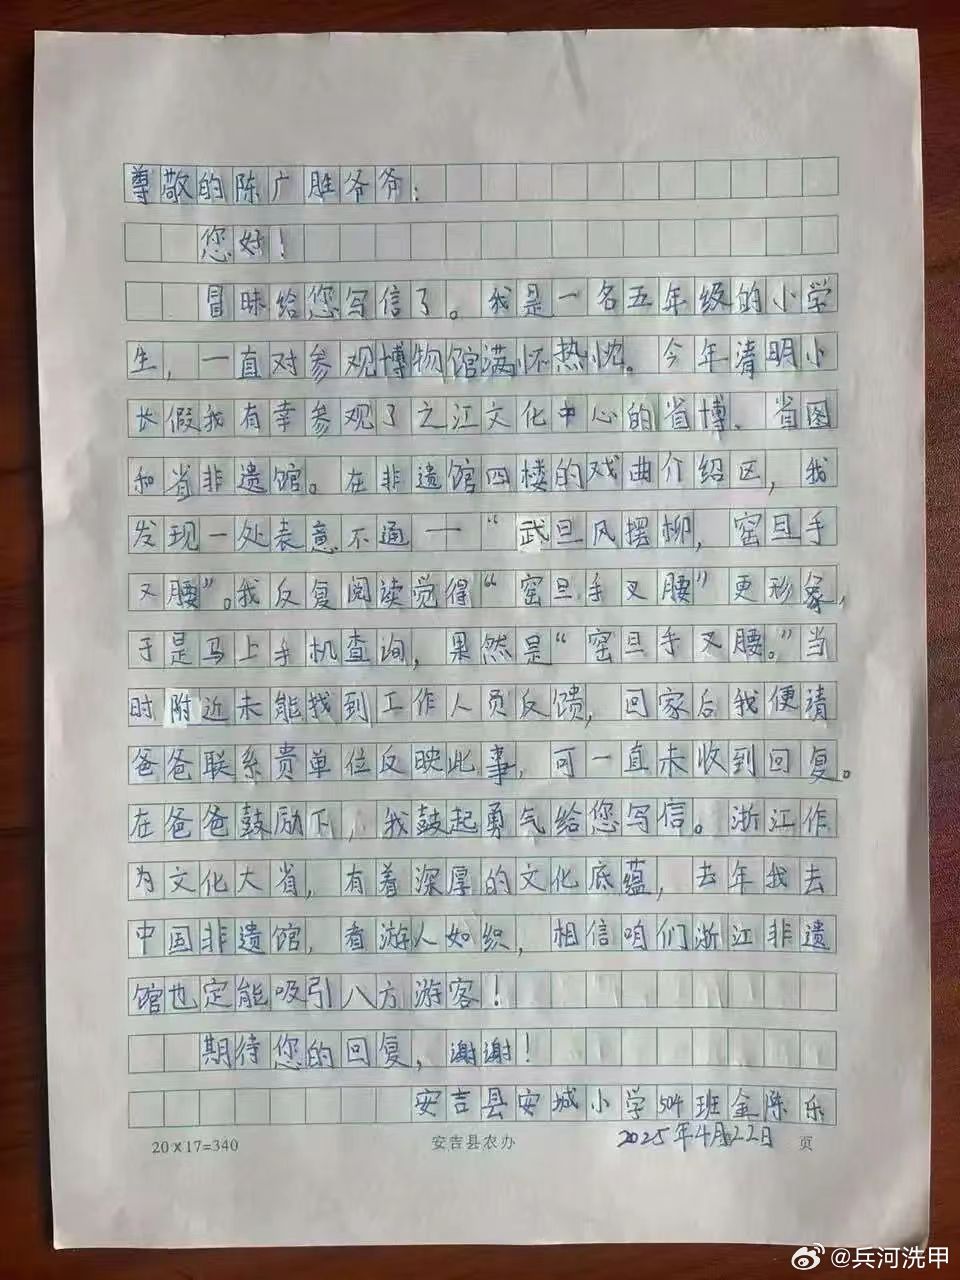 尊敬的陈广胜爷爷：
您好！
冒昧给您写信了。我是一名五年级的小学
生，一直对参观博物馆满怀热忱。今年清明小
长假我有幸参观了之江文化中心的省博、省图
和省非遗馆。在非遗馆四楼的戏曲介绍区，我
发现一处表意不通——“武旦风摆柳，窑旦手
叉腰”。我反复阅读觉得“窑旦手叉腰”更形象，
于是马上手机查询，果然是“窑旦手叉腰。”当
时附近未能找到工作人员反馈，回家后我便请
爸爸联系贵单位反映此事，可一直未收到回复。
在爸爸鼓励下，我鼓起勇气给您写信。浙江作
为文化大省，有着深厚的文化底蕴，去年我去
中国非遗馆，看游人如织，相信咱们浙江非遗
馆也定能吸引八方游客！
期待您的回复，谢谢！
安吉县安城小学504班金陈乐
2025年4月22日
20×17=340 安吉县农办 页
@兵河洗甲